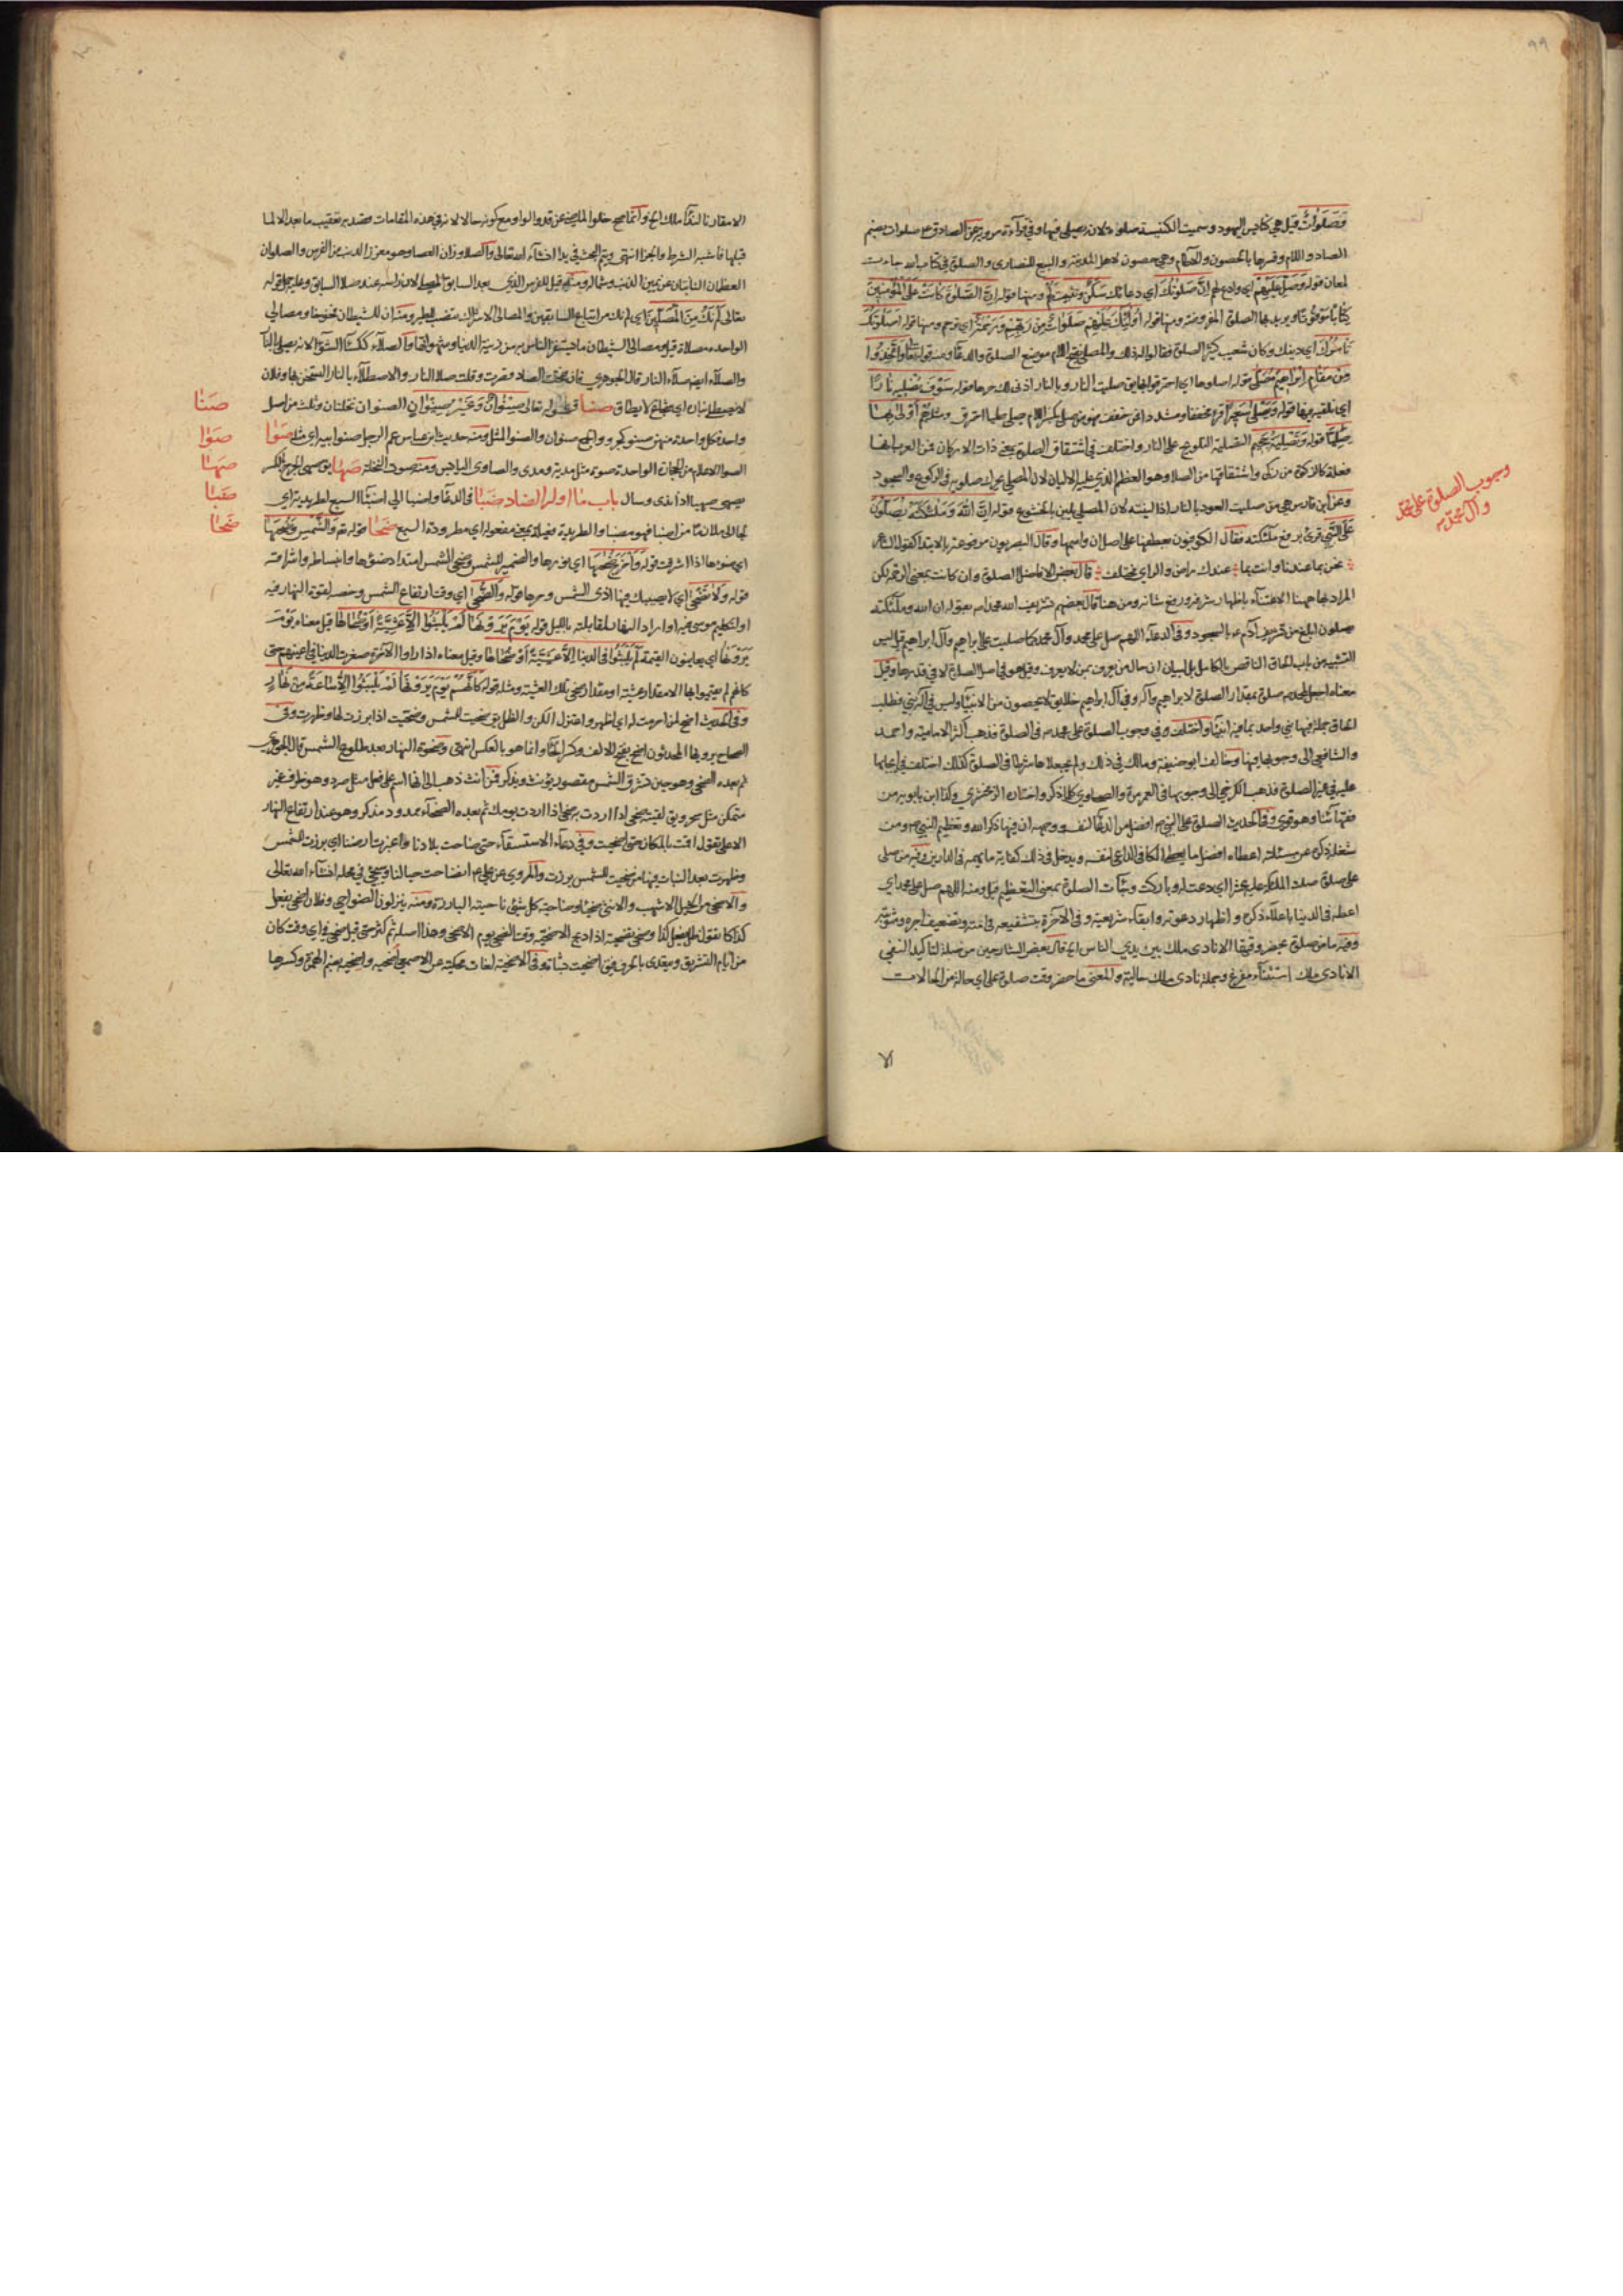 ٩٩
وَصَلَوَاتٌ قيل هي كنائس اليهود وسميت الكنيسة صلوة لانه يصلى فيها وفي قراءة مروية عن الصادق ع صلوات بضم
الصاد واللام وفسرها بالحصون والآطام وهي حصون لاهل المدينة والبيع للنصارى والصلوة في كتاب الله جاءت
لمعان قوله وَصَلِّ عَلَيْهِمْ اي وادع لهم اِنَّ صَلَوتَكَ اي دعائك سَكَنٌ وتثبيت لَهُمْ ومنها قوله اِنَّ الصَّلوةَ كَانَتْ عَلَى الْمُؤمِنينَ
كِتَابًا مَوْقُوتًا ويريد بها الصلوة المفروضة ومنها قوله أُولٰئِكَ عَلَيْهِمْ صَلَوَاتٌ مِنْ رَبِّهِمْ وَرَحْمَةٌ اي ترحم ومنها قوله أَصَلَوتُكَ
تَأمُرُكَ اي دينك وكان شعيب كثير الصلوة فقالوا له ذلك والمصلى بفتح اللام موضع الصلوة والدعاء ومنه قوله تعالى وَاتَّخِذُوا
مِنْ مَقَامِ اِبْرَاهِيمَ مُصَلًّى قوله اصلوها اي احترقوا بها يق صليت النار وبالنار اذا نالك حرها قوله سَوْفَ نُصْلِيهِ نَارًا
اي نلقيه فيها قوله وَيَصْلَى سَعِيرًا قرئ مخففا ومشددا فمن خفف فهو من صلي بكسر اللام يصلى صليا احترق ومثله هُمْ أَوْلَى بِهَا
صِلِيًّا قوله وَتَصْلِيَةُ جَحِيمٍ التصلية التلويح على النار واختلف في اشتقاق الصلوة بمعنى ذات الاركان فعن المغرب انها
فعلة كالزكوة من زكى واشتقاقها من الصلا وهو العظم الذي عليه الاليان لان المصلي يحرك صلويه في الركوع والسجود
وعن ابن فارس هي من صليت العود بالنار اذا لينته لان المصلي يلين بالخشوع قوله اِنَّ اللّٰهَ وَمَلٰئِكَتَهُ يُصَلُّونَ
عَلَى النَّبِيِّ قرئ برفع ملئكته فقال الكوفيون بعطفها على اصل ان واسمها وقال البصريون مرفوعة بالابتداء كقول الشاعر
نحن بما عندنا وانت بما عندك راض والراي مختلف قال بعض الافاضل الصلوة وان كانت بمعنى الرحمة لكن
المراد بها هيهنا الاعتناء باظهار شرفه ورفع شانه ومن هنا قال بعضهم تشريف الله محمدا ص بقوله ان الله وملئكته
يصلون ابلغ من تشريف آدم ع بالسجود وفي الدعاء اللهم صل على محمد وآل محمد كما صليت على ابراهيم وآل ابراهيم قيل ليس
التشبيه من باب الحاق الناقص بالكامل بل لبيان ان حال من يعرف بمن لا يعرف وقيل هو في اصل الصلوة لا في قدرها وقيل
معناه اجعل لمحمد ص صلوة بمقدار الصلوة لابراهيم وآله وفي آل ابراهيم خلايق لا يحصون من الانبياء وليس في آله نبي فطلب
الحاق جملة فيها نبي واحد بما فيه انبياء واختلف وفي وجوب الصلوة على محمد ص في الصلوة فذهب اكثر الامامية واحمد
والشافعي الى وجوبها فيها وخالف ابو حنيفة ومالك في ذلك ولم يجعلاها شرطا في الصلوة كذلك اختلف في ايجابها
عليه في غير الصلوة فذهب الكرخي الى وجوبها في العمر مرة والطحاوي كلما ذكر واختاره الزمخشري وكذا ابن بابويه من
فقهائنا وهو قوي وفي الحديث الصلوة على النبي ص افضل من الدعاء لنفسه ووجهه ان فيها ذكر الله وتعظيم النبي ص ومن
شغله ذكره عن مسئلته اعطاه افضل مما يعطي الداعي لنفسه ويدخل في ذلك كفاية ما يهمه في الدارين وفيه من صلى
على صلوة صلت الملئكة عليه عشرا اي دعت له وباركت وجائت الصلوة بمعنى التعظيم قيل ومنه اللهم صل على محمد اي
اعطه في الدنيا باعلاء ذكره واظهار دعوته وابقاء شريعته وفي الآخرة بتشفيعه في امته وتضعيف اجره ومثوبته
وفيه ما من صلوة يحضر وقتها الا نادى ملك بين يدي الناس الخ قال بعض الشارحين من صلة لتاكيد النفي
الا نادى ملك استثناء مفرغ وجملة نادى ملك حالية والمعنى ما حضر وقت صلوة على اي حالة من الحالات
الا
وجوب الصلوة على محمد
وآل محمد ص
الا مقارنا لنداء ملك الخ وانما صح خلو الماضي عن قد والواو مع كونه حالا لانه في هذه المقامات قصد به تعقيب ما بعد الا لما
قبلها فاشبه الشرط والجزاء انتهى ويتم البحث في بدا انشاء الله تعالى والصلا وزان العصا وهو مغرز الذنب من الفرس والصلوان
العظمان النابتان عن يمين الذنب وشماله ومنه قيل للفرس الذي بعد السابق المصلي لان راسه عند صلا السابق وعليه حمل قوله
تعالى لَمْ نَكُ مِنَ الْمُصَلِّينَ اي لم نك من اتباع السابقين والمصالي الاشراك تنصب للطير ومنه ان للشيطان فخوخا ومصالي
الواحدة مصلاة قيل ومصالي الشيطان ما يستفز الناس به من زينة الدنيا وشهواتها والصلاء ككساء الشواء لانه يصلى بالنار
والصلاء ايضا صلاء النار قال الجوهري فان فتحت الصاد قصرت وقلت صلا النار والاصطلاء بالنار التسخن بها وفلان
لا يصطلى بناره اي شجاع لا يطاق صنا قوله تعالى صِنْوَانٌ وَغَيْرُ صِنْوَانٍ الصنوان نخلتان وثلث من اصل
واحد فكل واحدة منهن صنو كبرو والجمع صنوان والصنو المثل ومنه حديث ابن عباس عم الرجل صنو ابيه اي مثله صوا
الصوا الاعلام من الحجارة الواحدة صوة مثل مدية ومدى والصاوي اليابس ومنه صوت النخلة صها يق صهى الجرح بالكسر
يصهى صهيا اذا ندى وسال باب ما اوله الضاد ضبا في الدعاء واضبا الي اضباء السبع لطريدته اي
لجا الى ملان مما من اضبا فهو مضبا والطريدة فعيلة بمعنى مفعولة اي مطرودة السبع ضحا قوله تع وَالشَّمْسِ وَضُحٰيهَا
اي ضوئها اذا اشرقت قوله وَأَخْرَجَ ضُحٰيهَا اي نورها والضمير للشمس وضحى الشمس امتداد ضوئها وانبساطه واشراقه
قوله وَلَا تَضْحَى اي لا يصيبك فيها اذى الشمس وحرها قوله وَالضُّحَى اي وقت ارتفاع الشمس وخصه لقوة النهار فيه
او لتكليم موسى فيه او اراد النهار لمقابلته بالليل قوله يَوْمَ يَرَوْنَهَا لَمْ يَلْبَثُوا اِلَّا عَشِيَّةً أَوْ ضُحٰيهَا قيل معناه يَوْمَ
يَرَوْنَهَا اي يعاينون القيمة لَمْ يَلْبَثُوا في الدنيا اِلَّا عَشِيَّةً أَوْ ضُحٰيهَا وقيل معناه اذا راوا الآخرة صغرت الدنيا في اعينهم حتى
كانهم لم يقيموا بها الا مقدار عشية او مقدار ضحى تلك العشية ومثله قوله كَأَنَّهُمْ يَوْمَ يَرَوْنَهَا لَمْ يَلْبَثُوا اِلَّا سَاعَةً مِنْ نَهَارٍ
وفي الحديث اضح لمن احرمت له اي اظهر واعتزل الكن والظل يق ضحيت للشمس وضحيت اذا برزت لها وظهرت وفي
الصحاح يرويها المحدثون اضح بفتح الالف وكسر الحاء وانما هو بالعكس انتهى وضحوة النهار بعد طلوع الشمس قال الجوهري
ثم بعده الضحى وهو حين تشرق الشمس مقصور يؤنث ويذكر فمن انث ذهب الى انها اسم على فعل مثل صرد وهو ظرف غير
متمكن مثل سحر ويق لقيته ضحى اذا اردت به ضحى يومك ثم بعده الضحاء ممدود مذكر وهو عند ارتفاع النهار
الاعلى تقول اقمت بالمكان حتى اضحيت وفي دعاء الاستسقاء حتى ضاحت بلادنا واغبرت ارضنا اي برزت للشمس
وظهرت بعد النبات فيها من ضحيت للشمس برزت والمروي عن علي ع انضاحت جبالنا وسيجئ في محله انشاء الله تعالى
والاضحى من الخيل الاشهب والانثى ضحياء وضاحية كل شئ ناحيته البارزة ومنه ينزلون الضواحي وفلان اضحى يفعل
كذا كما تقول ظل يفعل كذا وضحى تضحية اذا ذبح الاضحية وقت الضحى يوم الاضحى وهذا اصله ثم كثر حتى قيل ضحى في اي وقت كان
من ايام التشريق ويتعدى بالحرف فيق ضحيت بشاة وفي الاضحية لغات محكية عن الاصمعي اضحية واضحية بضم الهمزة وكسرها
صنا
صوا
صها
ضبا
ضحا